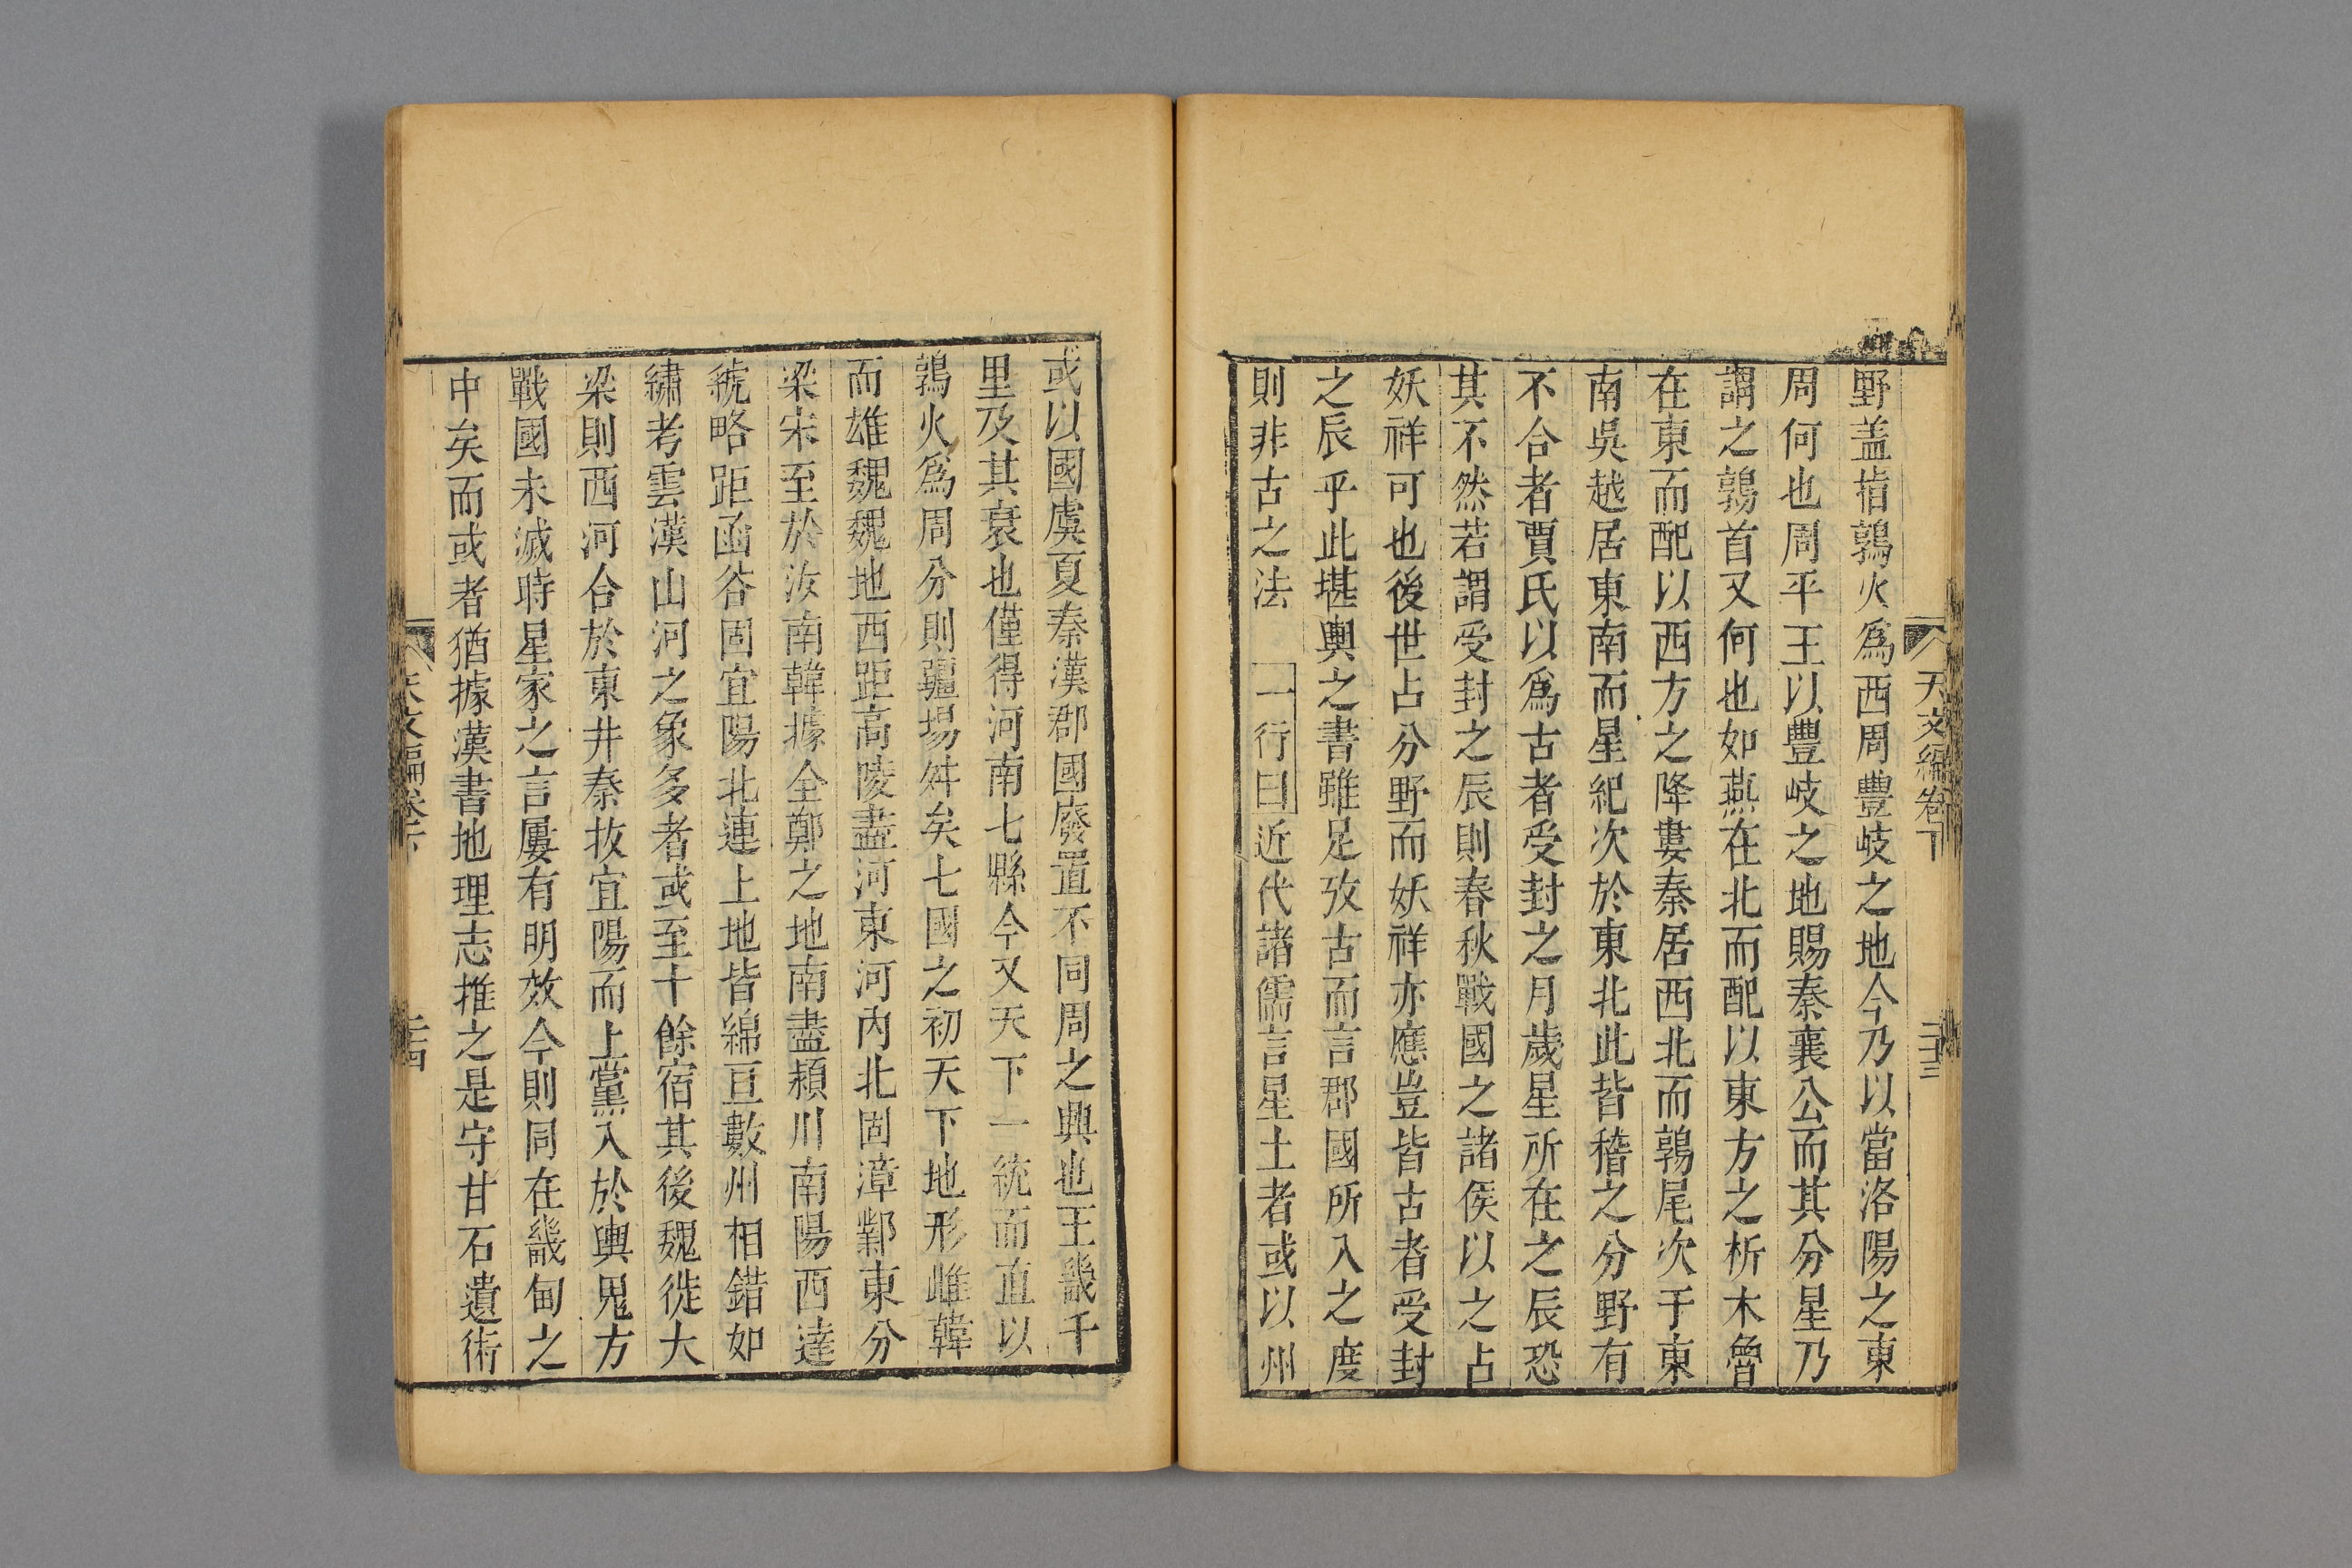 天文編卷下 二十三
野盖指鶉火爲西周豐岐之地今乃以當洛陽之東
周何也周平王以豐岐之地賜秦襄公而其分星乃
謂之鶉首又何也如燕在北而配以東方之析木魯
在東而配以西方之降婁秦居西北而鶉尾次于東
南吳越居東南而星紀次於東北此皆稽之分野有
不合者賈氏以爲古者受封之月歲星所在之辰恐
其不然若謂受封之辰則春秋戰國之諸侯以之占
妖祥可也後世占分野而妖祥亦應豈皆古者受封
之辰乎此堪輿之書雖足攷古而言郡國所入之度
則非古之法 一行曰近代諸儒言星土者或以州
或以國虞夏秦漢郡國廢置不同周之興也王畿千
里及其衰也僅得河南七縣今又天下一統而直以
鶉火爲周分則疆場舛矣七國之初天下地形雌韓
而雄魏魏地西距高陵盡河東河內北固漳鄴東分
梁宋至於汝南韓據全鄭之地南盡潁川南陽西達
虢略距函谷固宜陽北連上地皆綿亘數州相錯如
繡考雲漢山河之象多者或至十餘宿其後魏徙大
梁則西河合於東井秦拔宜陽而上黨入於輿鬼方
戰國未滅時星家之言屢有明效今則同在畿甸之
中矣而或者猶據漢書地理志推之是守甘石遺術
天文編卷下 二十四